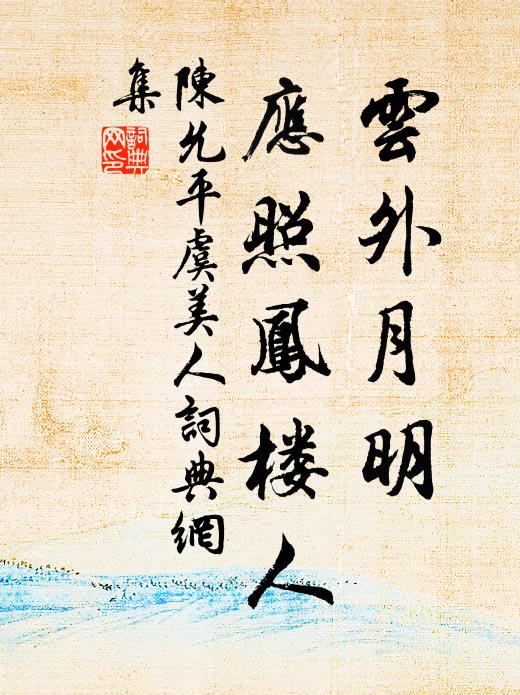 雲外月明
應照鳳楼人
陳允平虞美人詞典網
集
詞典網印